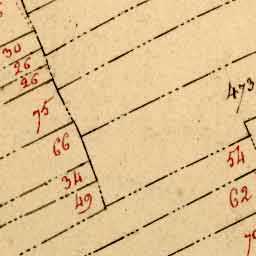 30
26
26
473
75
66
54
34
62
49